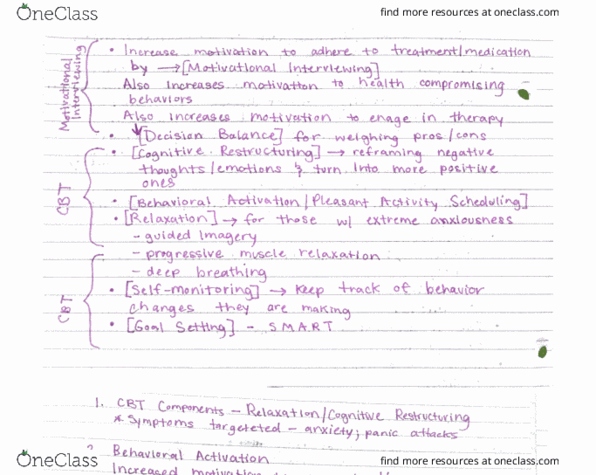 OneClass
find more resources at oneclass.com
Motivational
Interviewing
• Increase motivation to adhere to treatment/medication
by → [Motivational Interviewing]
Also increases motivation to health compromising
behaviors
Also increases motivation to enage in therapy
• [Decision Balance] for weighing pros/cons
CBT
• [Cognitive Restructuring] → reframing negative
thoughts/emotions & turn into more positive
ones
• [Behavioral Activation/Pleasant Activity Scheduling]
• [Relaxation] → for those w/ extreme anxiousness
- guided imagery
- progressive muscle relaxation
- deep breathing
CBT
• [Self-monitoring] → keep track of behavior
changes they are making
• [Goal Setting] - S.M.A.R.T
1. CBT Components - Relaxation/Cognitive Restructuring
* Symptoms targeteted - anxiety; panic attacks
2. Behavioral Activation
Increased
OneClass
find more resources at oneclass.com